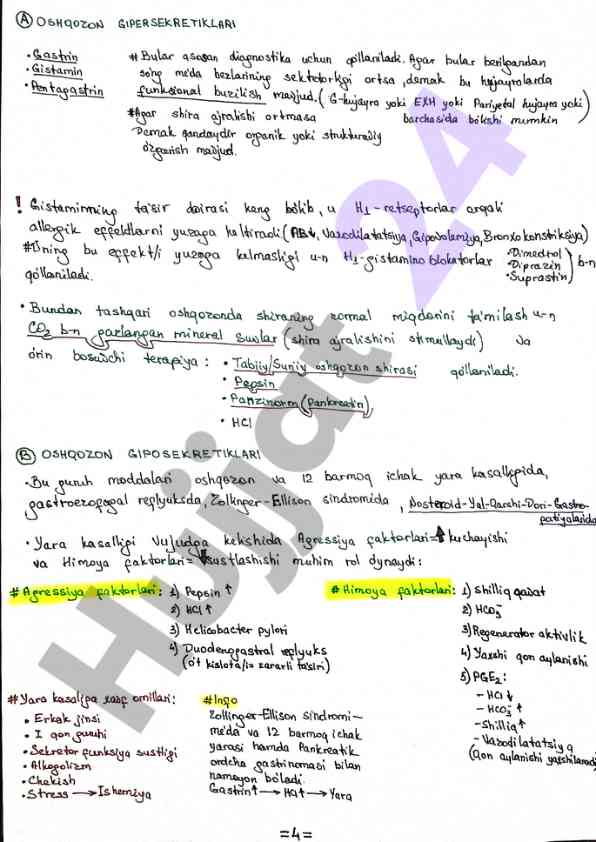 A OSHQOZON GIPERSEKRETIKLARI
• Gastrin
• Gistamin
• Pentagastrin
# Bular asosan diagnostika uchun qo'llaniladi. Agar bular berilgandan
so'ng me'da bezlarining sektetorligi ortsa, demak bu hujayralarda
funksional buzilish mavjud. (G-hujayra yoki EXH yoki Pariyetal hujayra yoki)
barchasida bo'lishi mumkin
#Agar shira ajralishi ortmasa
Demak qandaydir organik yoki strukturaviy
o'zgarish mavjud.
! Gistaminning ta'sir doirasi keng bo'lib, u H1-retseptorlar orqali
allergik effektlarni yuzaga keltiradi (AB↓, Vazodilatatsiya, Gipovolemiya, Bronxokonstriksiya)
#Uning bu effekt/i yuzaga kelmasligi u-n H1-gistamino blokatorlar
• Dimedrol
• Diprazin
• Suprastin
b-n
qo'llaniladi.
• Bundan tashqari oshqozonda shiraning normal miqdorini ta'milash u-n
CO2 b-n gazlangan mineral suvlar (shira ajralishini stimullaydi) va
o'rin bosuvchi terapiya:
• Tabiiy/Sun'iy oshqozon shirasi qo'llaniladi.
• Pepsin
• Panzinorm (Pankreatin)
• HCl
B OSHQOZON GIPOSEKRETIKLARI
• Bu guruh moddalari oshqozon va 12 barmoq ichak yara kasalligida,
gastroezofagal reflyuksda, Zollinger-Ellison sindromida, Nosteroid-Yal-Qarshi-Dori-Gastro-
patiyalarida
• Yara kasalligi Vujudga kelishida Agressiya faktorlari=↑ kuchayishi
va Himoya faktorlari=↓sustlashishi muhim rol o'ynaydi:
# Agressiya faktorlari: 1) Pepsin ↑
2) HCl ↑
3) Helicobacter pylori
4) Duodenogastral reflyuks
(o't kislota/la zararli ta'siri)
# Himoya faktorlari: 1) Shilliq qavat
2) HCO3-
3) Regenerator aktivlik
4) Yaxshi qon aylanishi
5) PGE2:
- HCl ↓
- HCO3- ↑
- Shilliq ↑
- Vazodilatatsiya
(Qon aylanishi yaxshilanadi)
# Yara kasaliga xavf omillari:
• Erkak jinsi
• I qon guruhi
• Sekretor funksiya sustligi
• Alkogolizm
• Chekish
• Stress → Ishemiya
# Info
Zollinger-Ellison Sindromi-
me'da va 12 barmoq ichak
yarasi hamda Pankreatik
orolcha gastrinomasi bilan
namoyon bo'ladi.
Gastrin↑ → HCl↑ → Yara
=4=
Hujjat 24